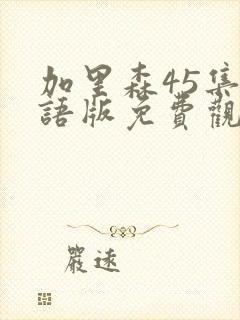 加里森45集
語版免費觀
嚴遠